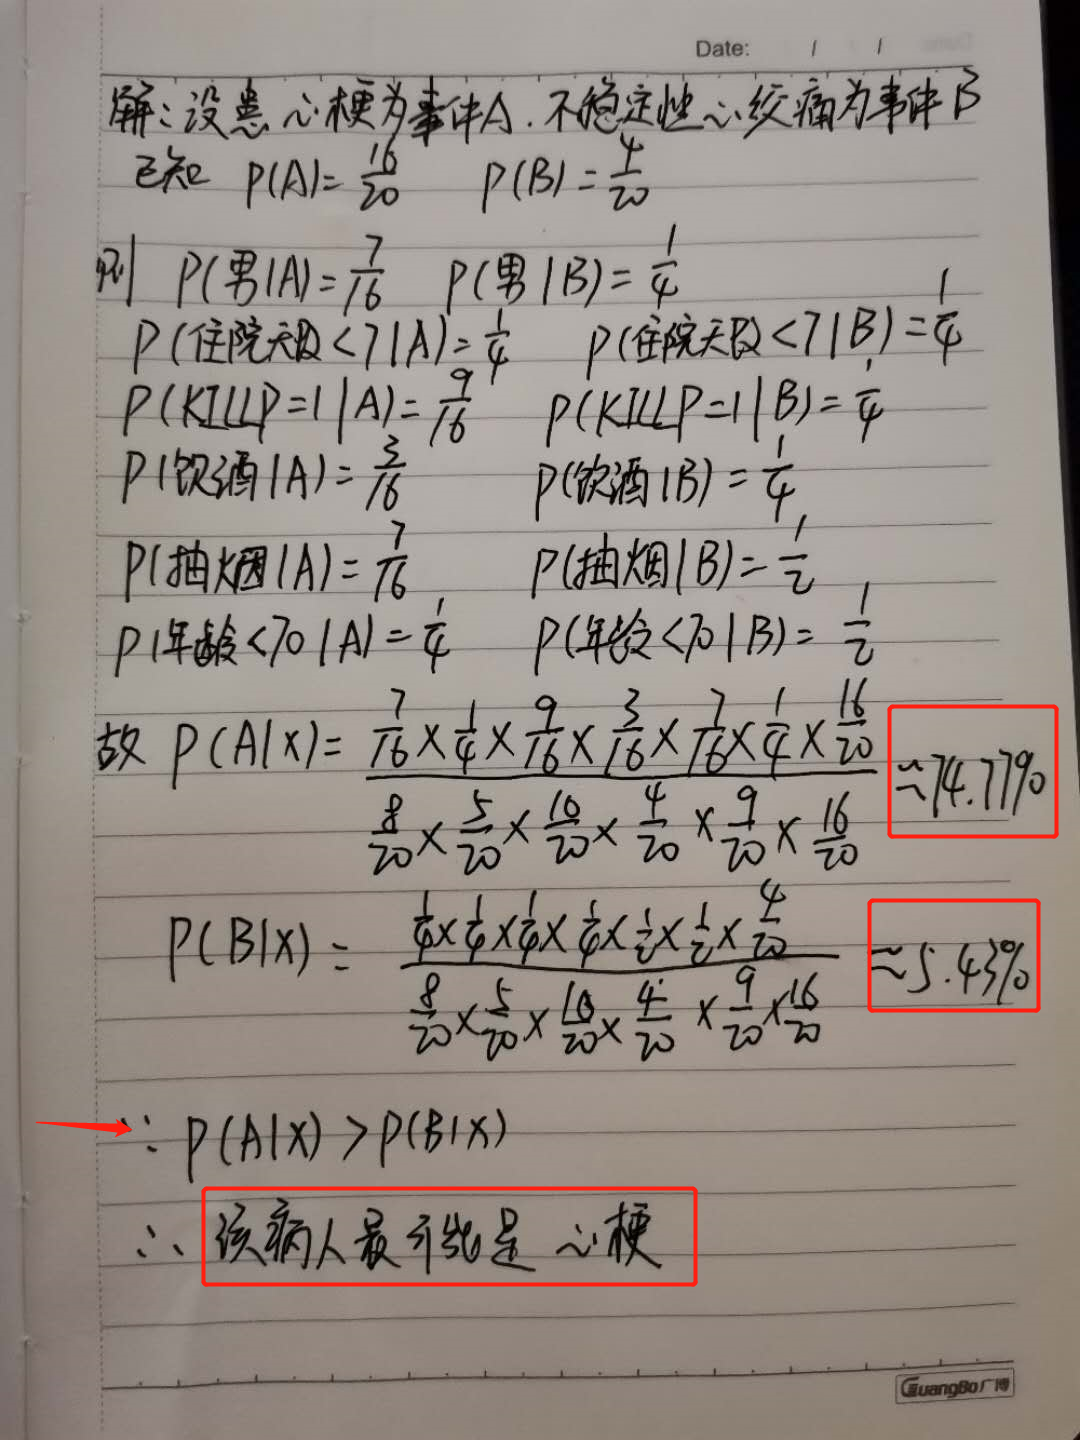 Date: / /
解:设患心梗为事件A.不稳定性心绞痛为事件B
已知 P(A)=16/20 P(B)=4/20
则 P(男|A)=7/16 P(男|B)=1/4
P(住院天数<7|A)=1/4 P(住院天数<7|B)=1/4
P(KILLP=1|A)=9/16 P(KILLP=1|B)=1/4
P(饮酒|A)=3/16 P(饮酒|B)=1/4
P(抽烟|A)=7/16 P(抽烟|B)=1/2
P(年龄<70|A)=1/4 P(年龄<70|B)=1/2
故 P(A|X)= 7/16×1/4×9/16×3/16×7/16×1/4×16/20 ≈74.77%
8/20×5/20×10/20×4/20×9/20×16/20
P(B|X)= 1/4×1/4×1/4×1/4×1/2×1/2×4/20 ≈5.43%
8/20×5/20×10/20×4/20×9/20×16/20
∵ P(A|X)>P(B|X)
∴ 该病人最可能是 心梗
GuangBo广博